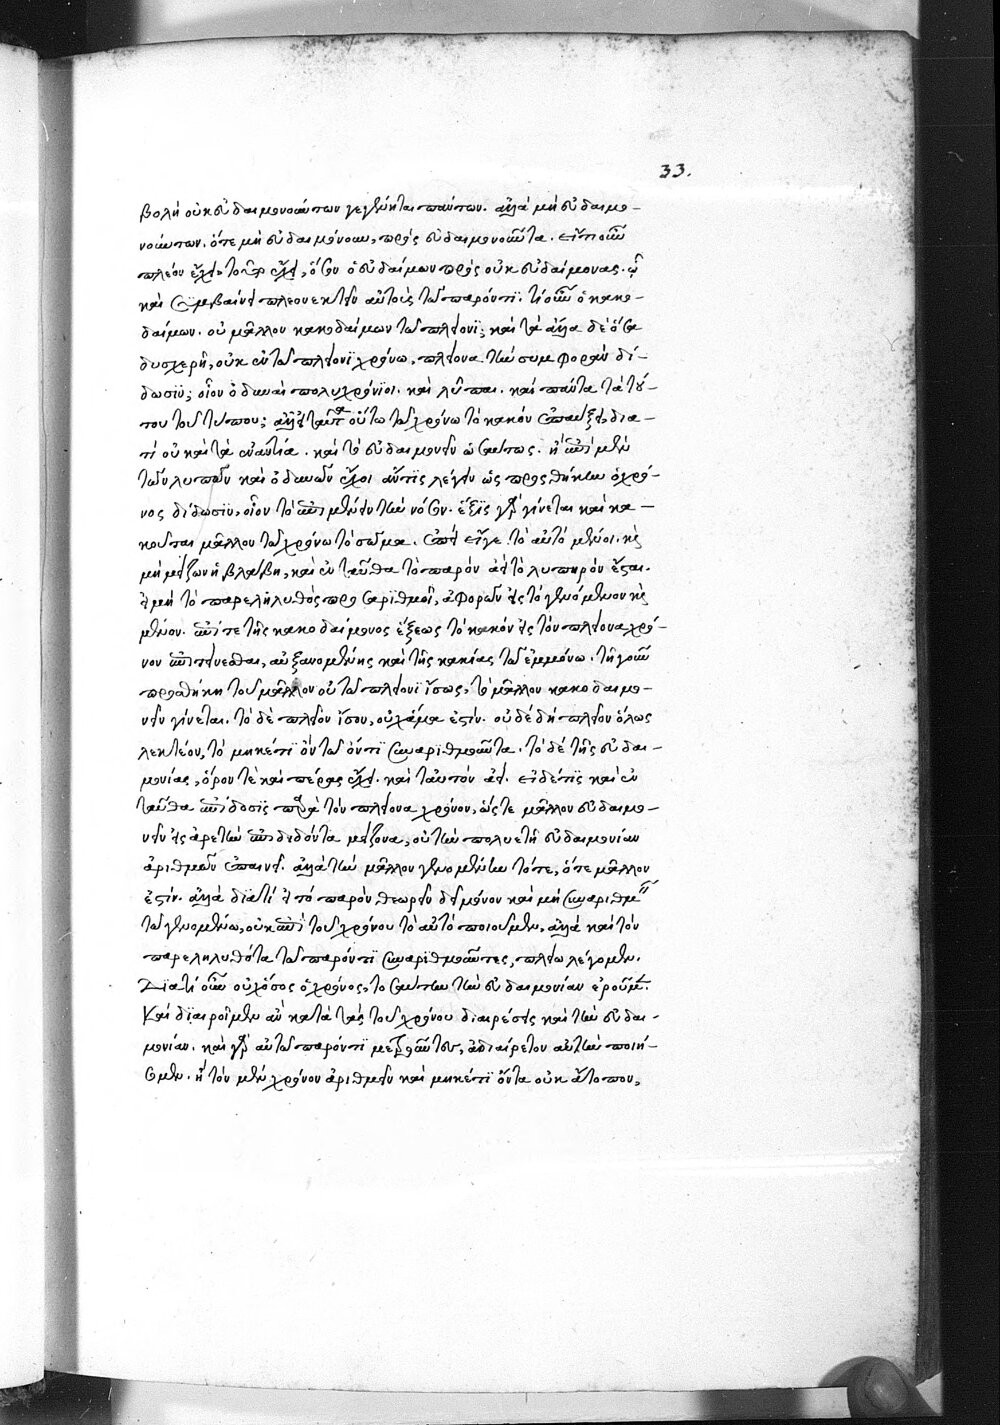 33.
βολὴ οὐκ εὐδαιμονούντων γεγένηται πάντων. ἀλλὰ μὴ εὐδαιμο-
νούντων. ὅτε μὴ εὐδαιμόνουν, πρὸς εὐδαιμονοῦντα. εἴ τι οὖν
πλέον ἔχει, τοῦτο ἔχει, ὅσον ὁ εὐδαίμων πρὸς οὐκ εὐδαίμονας. ᾧ
καὶ συμβαίνει πλεονεκτεῖν αὐτοὺς τῷ παρόντι. τί οὖν ὁ κακο-
δαίμων. οὐ μᾶλλον κακοδαίμων τῷ πλείονι; καὶ τὰ ἄλλα δὲ ὅσα
δυσχερῆ, οὐκ ἐν τῷ πλείονι χρόνῳ, πλείονα τὴν συμφορὰν δί-
δωσιν; οἷον ὀδύναι πολυχρόνιοι. καὶ λῦπαι. καὶ πάντα τὰ τού-
του τοῦ τύπου; ἀλλ' εἰ ταῦτα οὕτω τῷ χρόνῳ τὸ κακὸν ἐπαύξει, δια-
τί οὐ καὶ τὰ ἐναντία. καὶ τὸ εὐδαιμονεῖν ὡσαύτως. ἢ ἐπὶ μὲν
τῶν λυπῶν καὶ ὀδυνῶν ἔχοι ἄν τις λέγειν ὡς προσθήκην ὁ χρό-
νος δίδωσιν, οἷον τὸ ἐπιμένειν τὴν νόσον. ἕξις γὰρ γίνεται καὶ κα-
κοῦται μᾶλλον τῷ χρόνῳ τὸ σῶμα. ἐπεὶ εἴγε τὸ αὐτὸ μένοι. καὶ
μὴ μείζων ἡ βλάβη, καὶ ἐνταῦθα τὸ παρὸν ἀεὶ τὸ λυπηρὸν ἔσται.
εἰ μὴ τὸ παρεληλυθὸς προσαριθμοῖ, ἀφορῶν εἰς τὸ γενόμενον καὶ
μένον. ἐπί τε τῆς κακοδαίμονος ἕξεως τὸ κακὸν εἰς τὸν πλείονα χρό-
νον ἐπιτείνεσθαι, αὐξανομένης καὶ τῆς κακίας τῷ ἐμμόνῳ. τῇ γοῦν
προσθήκῃ τοῦ μᾶλλον οὐ τῷ πλείονι ἴσως, τὸ μᾶλλον κακοδαιμο-
νεῖν γίνεται. τὸ δὲ πλεῖον ἴσου, οὐχ ἅμα ἐστίν. οὐδὲ δὴ πλεῖον ὅλως
λεκτέον, τὸ μηκέτι ὂν τῷ ὄντι συναριθμοῦντα. τὸ δὲ τῆς εὐδαι-
μονίας, ὅρον τὲ καὶ πέρας ἔχει. καὶ ταυτὸν ἀεί. εἰ δέ τις καὶ ἐν
ταῦθα ἐπίδοσις παρὰ τὸν πλείονα χρόνον, ὥστε μᾶλλον εὐδαιμο-
νεῖν εἰς ἀρετὴν ἐπιδιδόντα μείζονα, οὐ τὴν πολυετῆ εὐδαιμονίαν
ἀριθμῶν ἐπαινεῖ. ἀλλὰ τὴν μᾶλλον γενομένην τότε, ὅτε μᾶλλον
ἐστίν. ἀλλὰ διατί εἰ τὸ παρὸν θεωρεῖν δεῖ μόνον καὶ μὴ συναριθμεῖν
τῷ γενομένῳ, οὐκ ἐπὶ τοῦ χρόνου τὸ αὐτὸ ποιοῦμεν, ἀλλὰ καὶ τὸν
παρεληλυθότα τῷ παρόντι συναριθμοῦντες, πλείω λέγομεν.
Διατί οὖν οὐχ ὅσος ὁ χρόνος, τοσαύτην τὴν εὐδαιμονίαν ἐροῦμεν.
Καὶ διαιροῖμεν ἂν κατὰ τὰς τοῦ χρόνου διαιρέσεις καὶ τὴν εὐδαι-
μονίαν. καὶ γὰρ αὖ τῷ παρόντι μετροῦντες, ἀδιαίρετον αὐτὴν ποιή-
σομεν. ἢ τὸν μὲν χρόνον ἀριθμεῖν καὶ μηκέτι ὄντα οὐκ ἄτοπον,